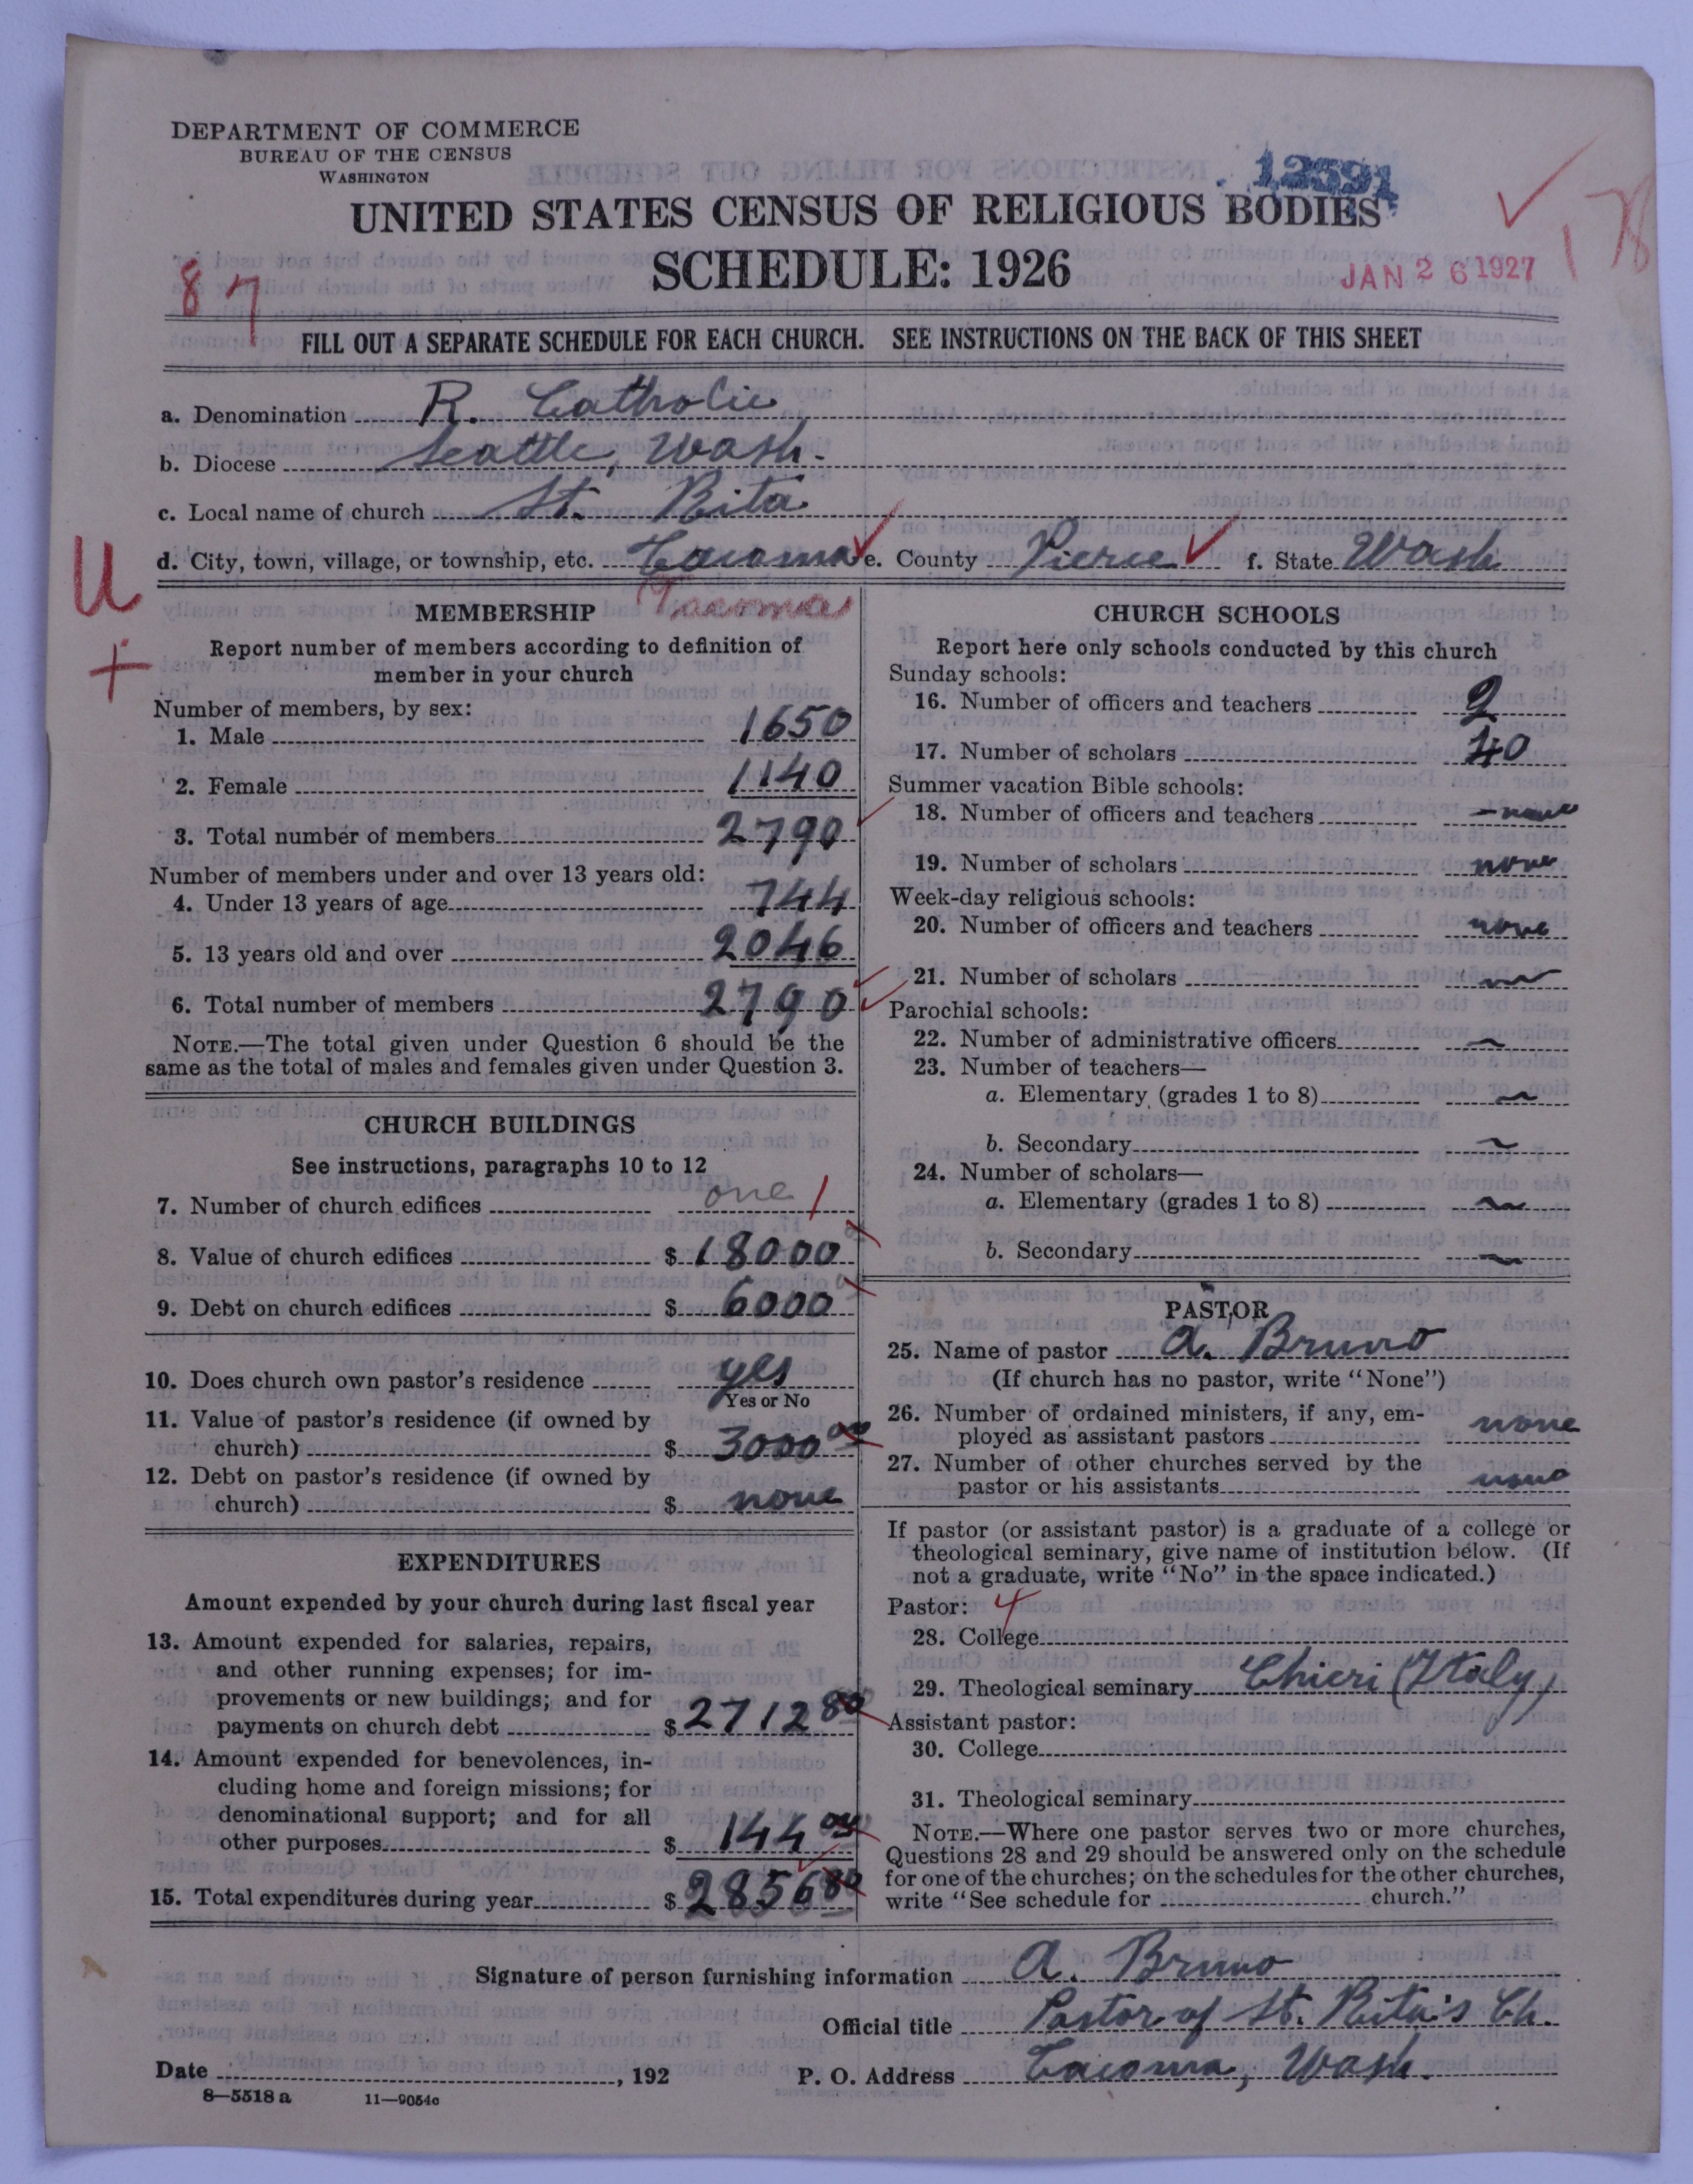 DEPARTMENT OF COMMERCE
BUREAU OF THE CENSUS
WASHINGTON
12591
UNITED STATES CENSUS OF RELIGIOUS BODIES
SCHEDULE: 1926
JAN 26 1927
87
178
FILL OUT A SEPARATE SCHEDULE FOR EACH CHURCH. SEE INSTRUCTIONS ON THE BACK OF THIS SHEET
a. Denomination R. Catholic
b. Diocese Seattle, Wash.
c. Local name of church St. Rita
d. City, town, village, or township, etc. Tacoma e. County Pierce f. State Wash
U
+
Tacoma
MEMBERSHIP
Report number of members according to definition of
member in your church
Number of members, by sex:
1. Male 1650
2. Female 1140
3. Total number of members 2790
Number of members under and over 13 years old:
4. Under 13 years of age 744
5. 13 years old and over 2046
6. Total number of members 2790
NOTE.—The total given under Question 6 should be the
same as the total of males and females given under Question 3.
CHURCH BUILDINGS
See instructions, paragraphs 10 to 12
7. Number of church edifices one 1
8. Value of church edifices $ 18000
9. Debt on church edifices $ 6000
10. Does church own pastor's residence yes
Yes or No
11. Value of pastor's residence (if owned by
church) $ 3000 00
12. Debt on pastor's residence (if owned by
church) $ none
EXPENDITURES
Amount expended by your church during last fiscal year
13. Amount expended for salaries, repairs,
and other running expenses; for im-
provements or new buildings; and for
payments on church debt $ 2712 80
14. Amount expended for benevolences, in-
cluding home and foreign missions; for
denominational support; and for all
other purposes $ 144 00
15. Total expenditures during year $ 2856 80
CHURCH SCHOOLS
Report here only schools conducted by this church
Sunday schools:
16. Number of officers and teachers 2
17. Number of scholars 40
Summer vacation Bible schools:
18. Number of officers and teachers none
19. Number of scholars none
Week-day religious schools:
20. Number of officers and teachers none
21. Number of scholars
Parochial schools:
22. Number of administrative officers
23. Number of teachers—
a. Elementary (grades 1 to 8)
b. Secondary
24. Number of scholars—
a. Elementary (grades 1 to 8)
b. Secondary
PASTOR
25. Name of pastor A. Bruno
(If church has no pastor, write "None")
26. Number of ordained ministers, if any, em-
ployed as assistant pastors none
27. Number of other churches served by the
pastor or his assistants none
If pastor (or assistant pastor) is a graduate of a college or
theological seminary, give name of institution below. (If
not a graduate, write "No" in the space indicated.)
Pastor: 4
28. College
29. Theological seminary Chieri (Italy)
Assistant pastor:
30. College
31. Theological seminary
NOTE.—Where one pastor serves two or more churches,
Questions 28 and 29 should be answered only on the schedule
for one of the churches; on the schedules for the other churches,
write "See schedule for church."
Signature of person furnishing information A. Bruno
Official title Pastor of St. Rita's Ch.
Date , 192 P. O. Address Tacoma, Wash.
8—5518 a 11—9054c